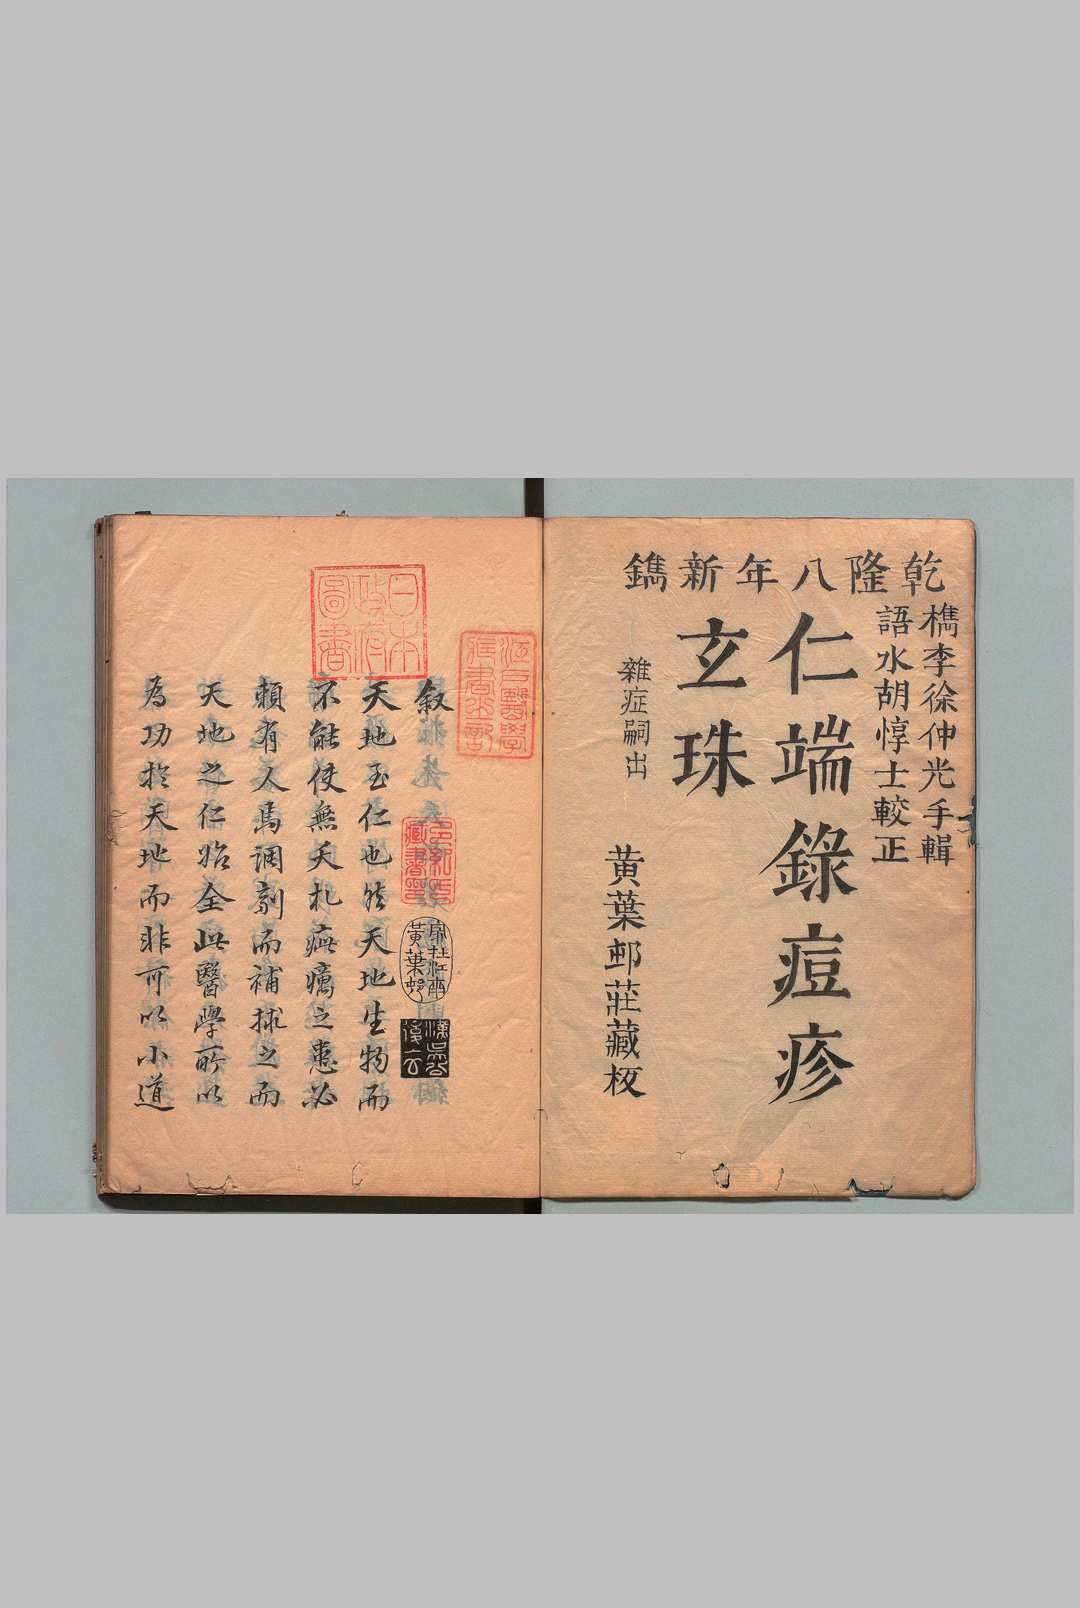 乾隆八年新鐫
檇李徐仲光手輯
語水胡惇士較正
仁端錄痘疹
玄珠
雜症嗣出
黃葉邨莊藏板
江戶醫學
藏書之記
日本
政府
圖書
敘
天地至仁也然天地生物而
不能使無夭札疵癘之患必
賴有人焉調劑而補捄之而
天地之仁始全此醫學所以
為功於天地而非可以小道
黃葉邨